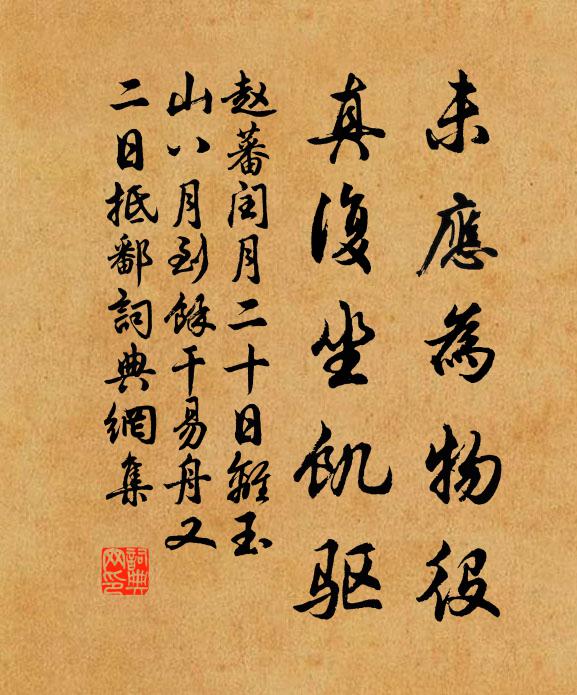 未應為物役
真復坐飢驅
赵蕃閏月二十日離玉
山八月到餘干易舟又
二日抵鄱詞典網集
詞典
网印